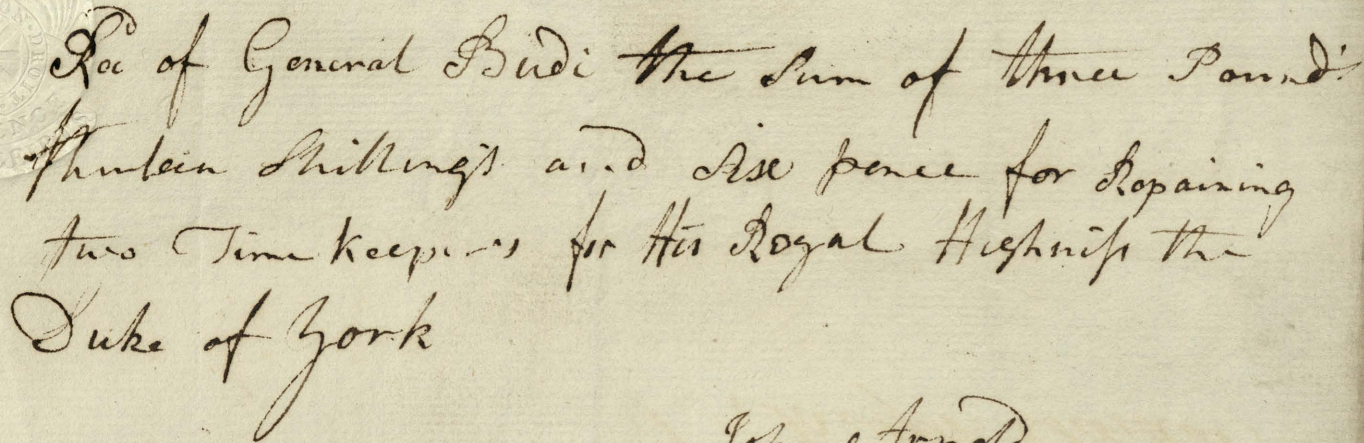 Recd of General Budè the Sum of three Pounds
thirteen Shillings and Six pence for Repairing
two Time keepers for His Royal Highness the
Duke of York
John Arnold